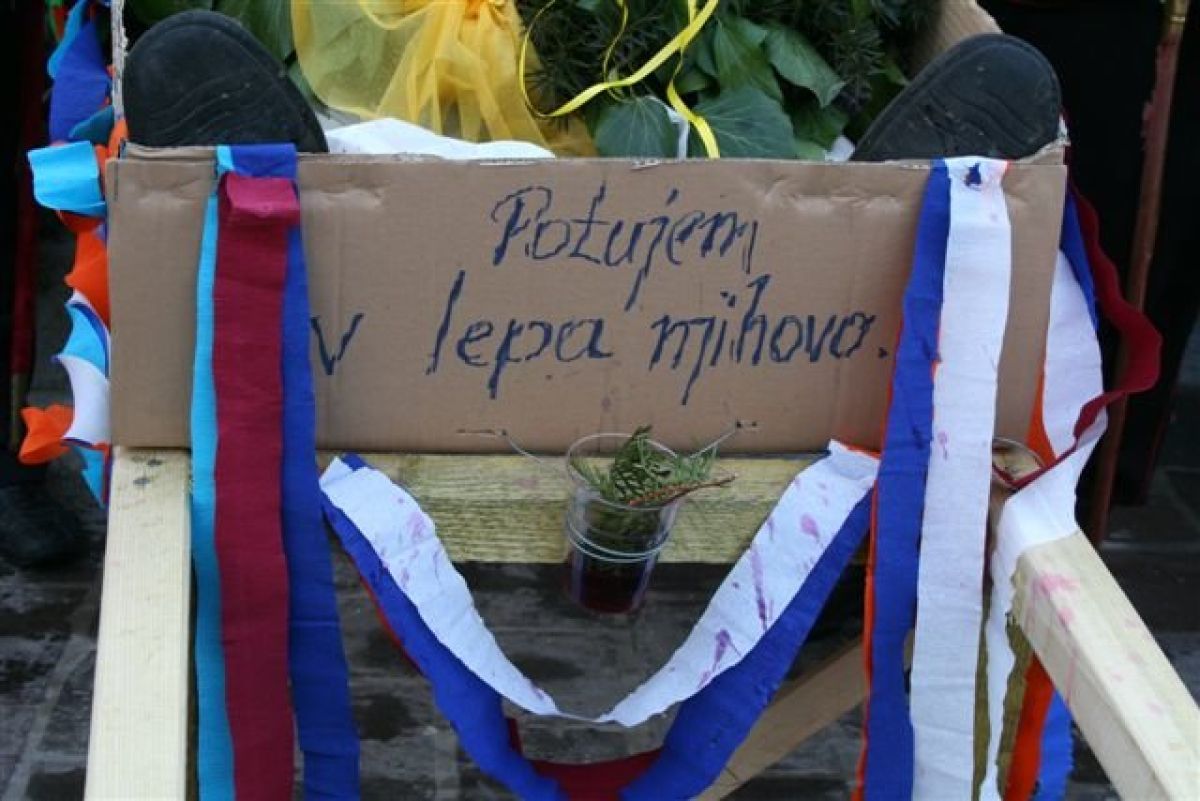 Potujem
v lepa mjhovo.